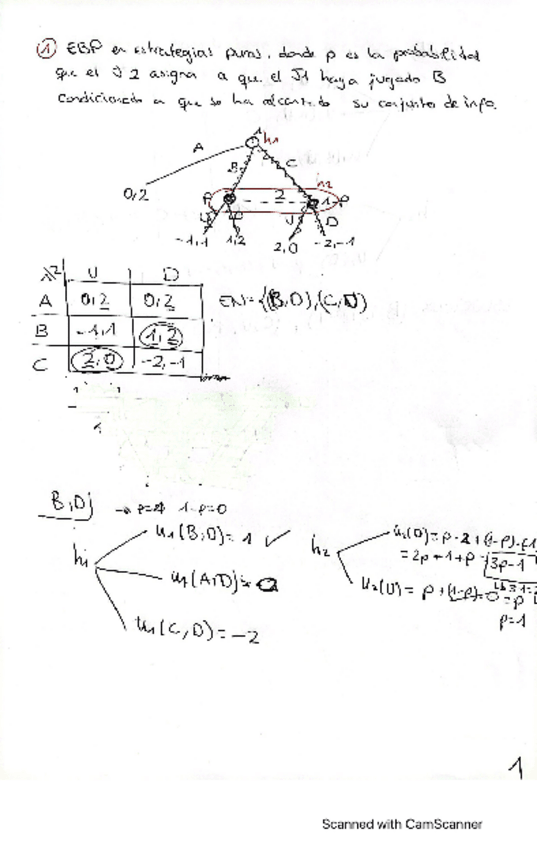 ① EBP en estrategias puras, donde p es la probabilidad
que el J2 asigna a que el J1 haya jugado B
condicionado a que se ha alcanzado su conjunto de info.
1 h1
A B C
0,2 P 2 h2 1-P
U D U D
-1,1 1,2 2,0 -2,-1
1\2 U D
A 0,2 0,2
B -1,1 1,2
C 2,0 -2,-1
EN={(B,D),(C,U)}
B,D → p=1 1-p=0
h1
u1(B,D)= 1 ✓
u1(A,D)= 0
u1(C,D)= -2
h2
u2(D)=p·2+(1-p)·(-1
=2p-1+p 3p-1
u2(U)= p+(1-p)·0=p
p=1
1
Scanned with CamScanner